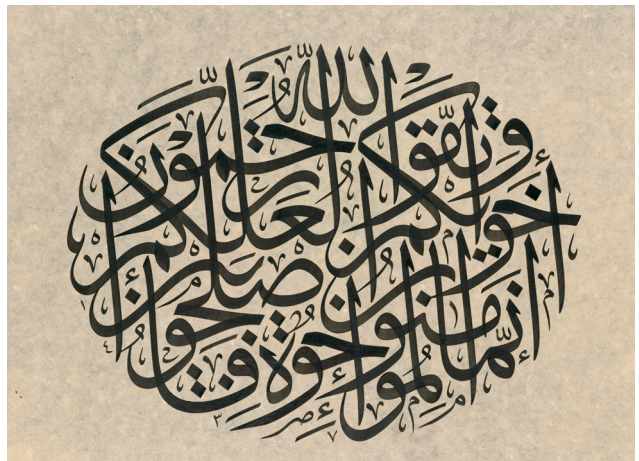 إِنَّمَا الْمُؤْمِنُونَ إِخْوَةٌ فَأَصْلِحُوا بَيْنَ أَخَوَيْكُمْ وَاتَّقُوا اللَّهَ لَعَلَّكُمْ تُرْحَمُونَ